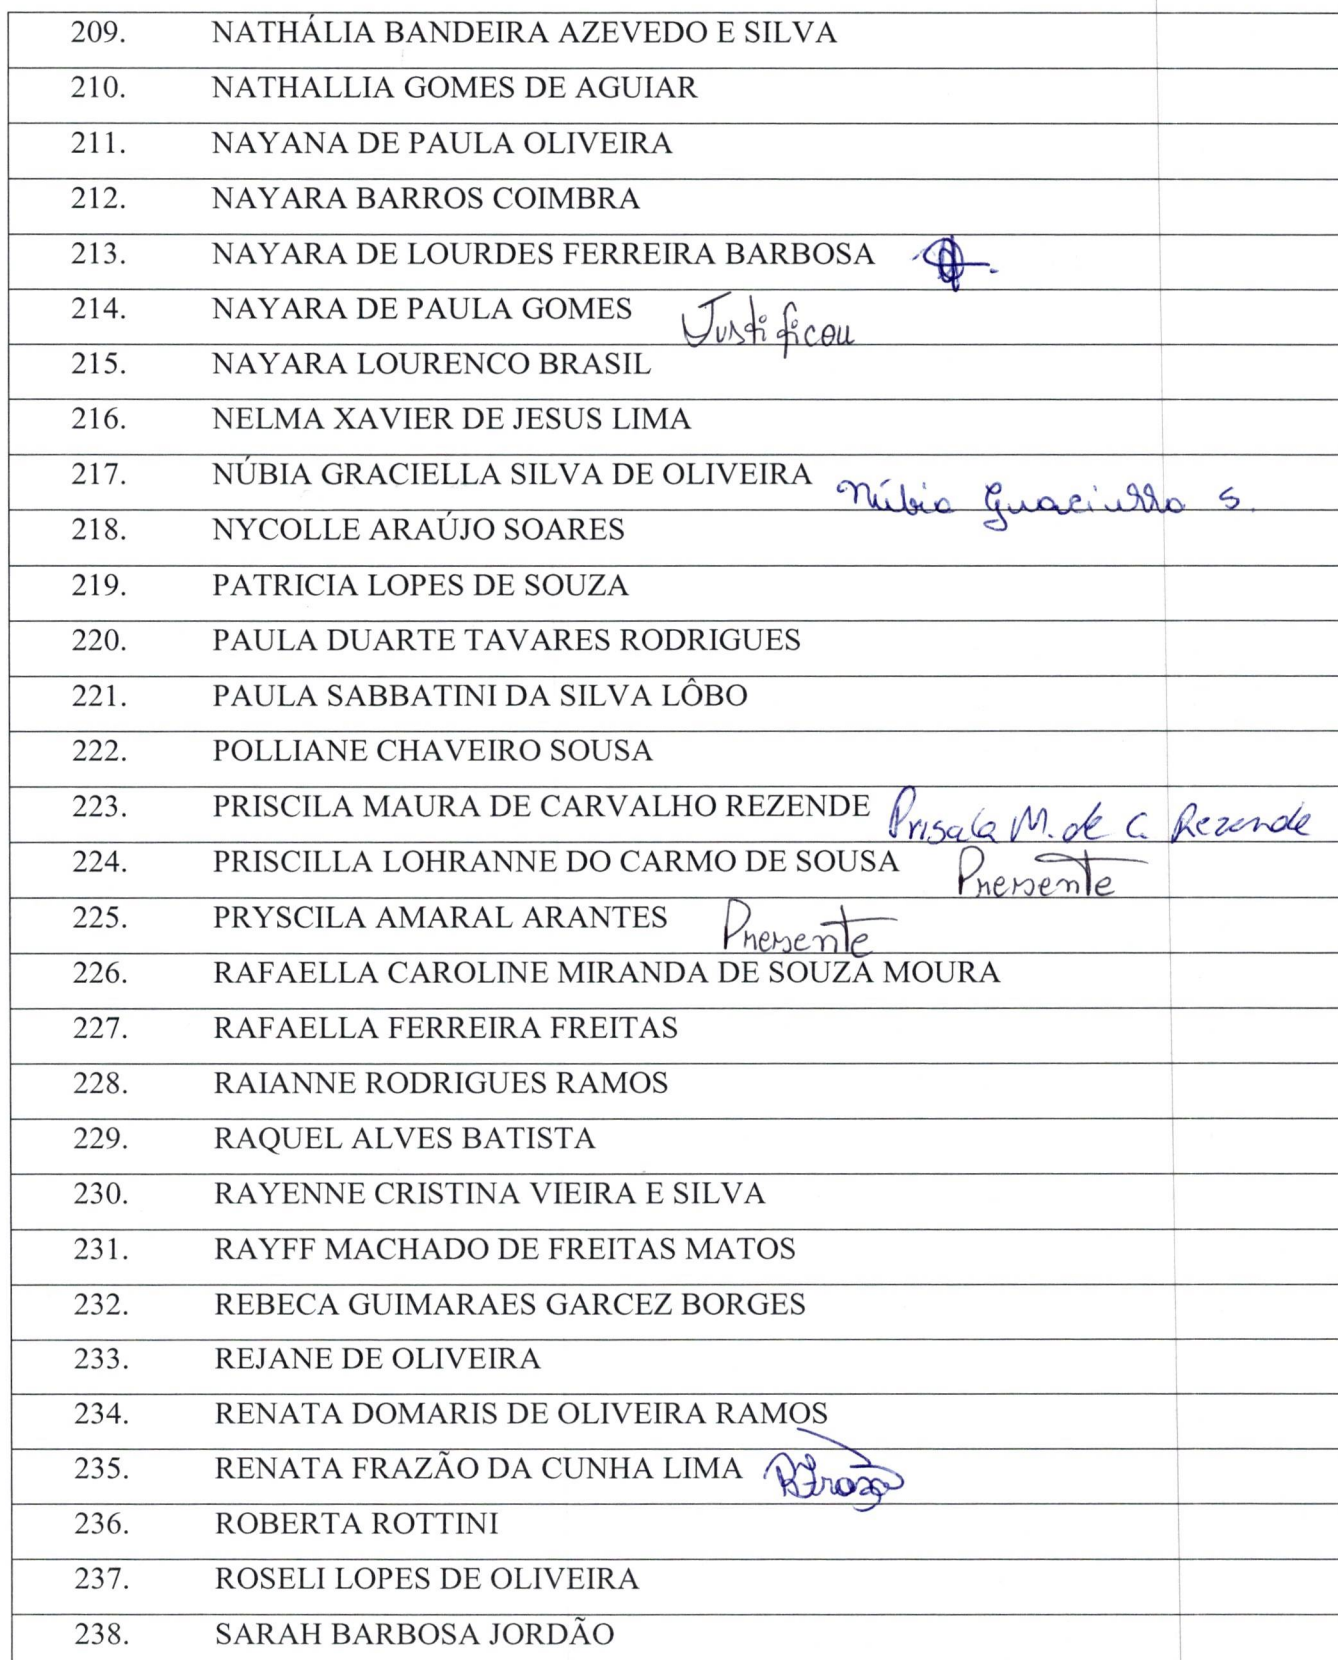 209. NATHÁLIA BANDEIRA AZEVEDO E SILVA
210. NATHALLIA GOMES DE AGUIAR
211. NAYANA DE PAULA OLIVEIRA
212. NAYARA BARROS COIMBRA
213. NAYARA DE LOURDES FERREIRA BARBOSA
214. NAYARA DE PAULA GOMES Justificou
215. NAYARA LOURENCO BRASIL
216. NELMA XAVIER DE JESUS LIMA
217. NÚBIA GRACIELLA SILVA DE OLIVEIRA Núbia Graciella S.
218. NYCOLLE ARAÚJO SOARES
219. PATRICIA LOPES DE SOUZA
220. PAULA DUARTE TAVARES RODRIGUES
221. PAULA SABBATINI DA SILVA LÔBO
222. POLLIANE CHAVEIRO SOUSA
223. PRISCILA MAURA DE CARVALHO REZENDE Priscila M. de C. Rezende
224. PRISCILLA LOHRANNE DO CARMO DE SOUSA Presente
225. PRYSCILA AMARAL ARANTES Presente
226. RAFAELLA CAROLINE MIRANDA DE SOUZA MOURA
227. RAFAELLA FERREIRA FREITAS
228. RAIANNE RODRIGUES RAMOS
229. RAQUEL ALVES BATISTA
230. RAYENNE CRISTINA VIEIRA E SILVA
231. RAYFF MACHADO DE FREITAS MATOS
232. REBECA GUIMARAES GARCEZ BORGES
233. REJANE DE OLIVEIRA
234. RENATA DOMARIS DE OLIVEIRA RAMOS
235. RENATA FRAZÃO DA CUNHA LIMA RFrazão
236. ROBERTA ROTTINI
237. ROSELI LOPES DE OLIVEIRA
238. SARAH BARBOSA JORDÃO